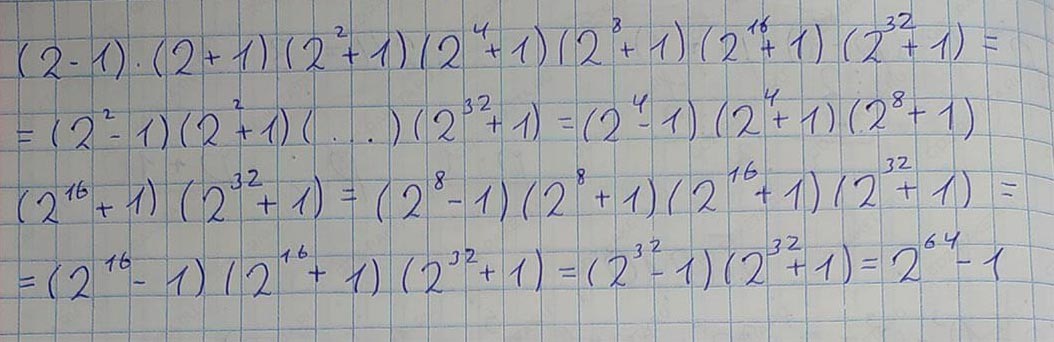 (2-1)·(2+1)(2²+1)(2⁴+1)(2⁸+1)(2¹⁶+1)(2³²+1)=
=(2²-1)(2²+1)(...)(2³²+1)=(2⁴-1)(2⁴+1)(2⁸+1)
(2¹⁶+1)(2³²+1)=(2⁸-1)(2⁸+1)(2¹⁶+1)(2³²+1)=
=(2¹⁶-1)(2¹⁶+1)(2³²+1)=(2³²-1)(2³²+1)=2⁶⁴-1